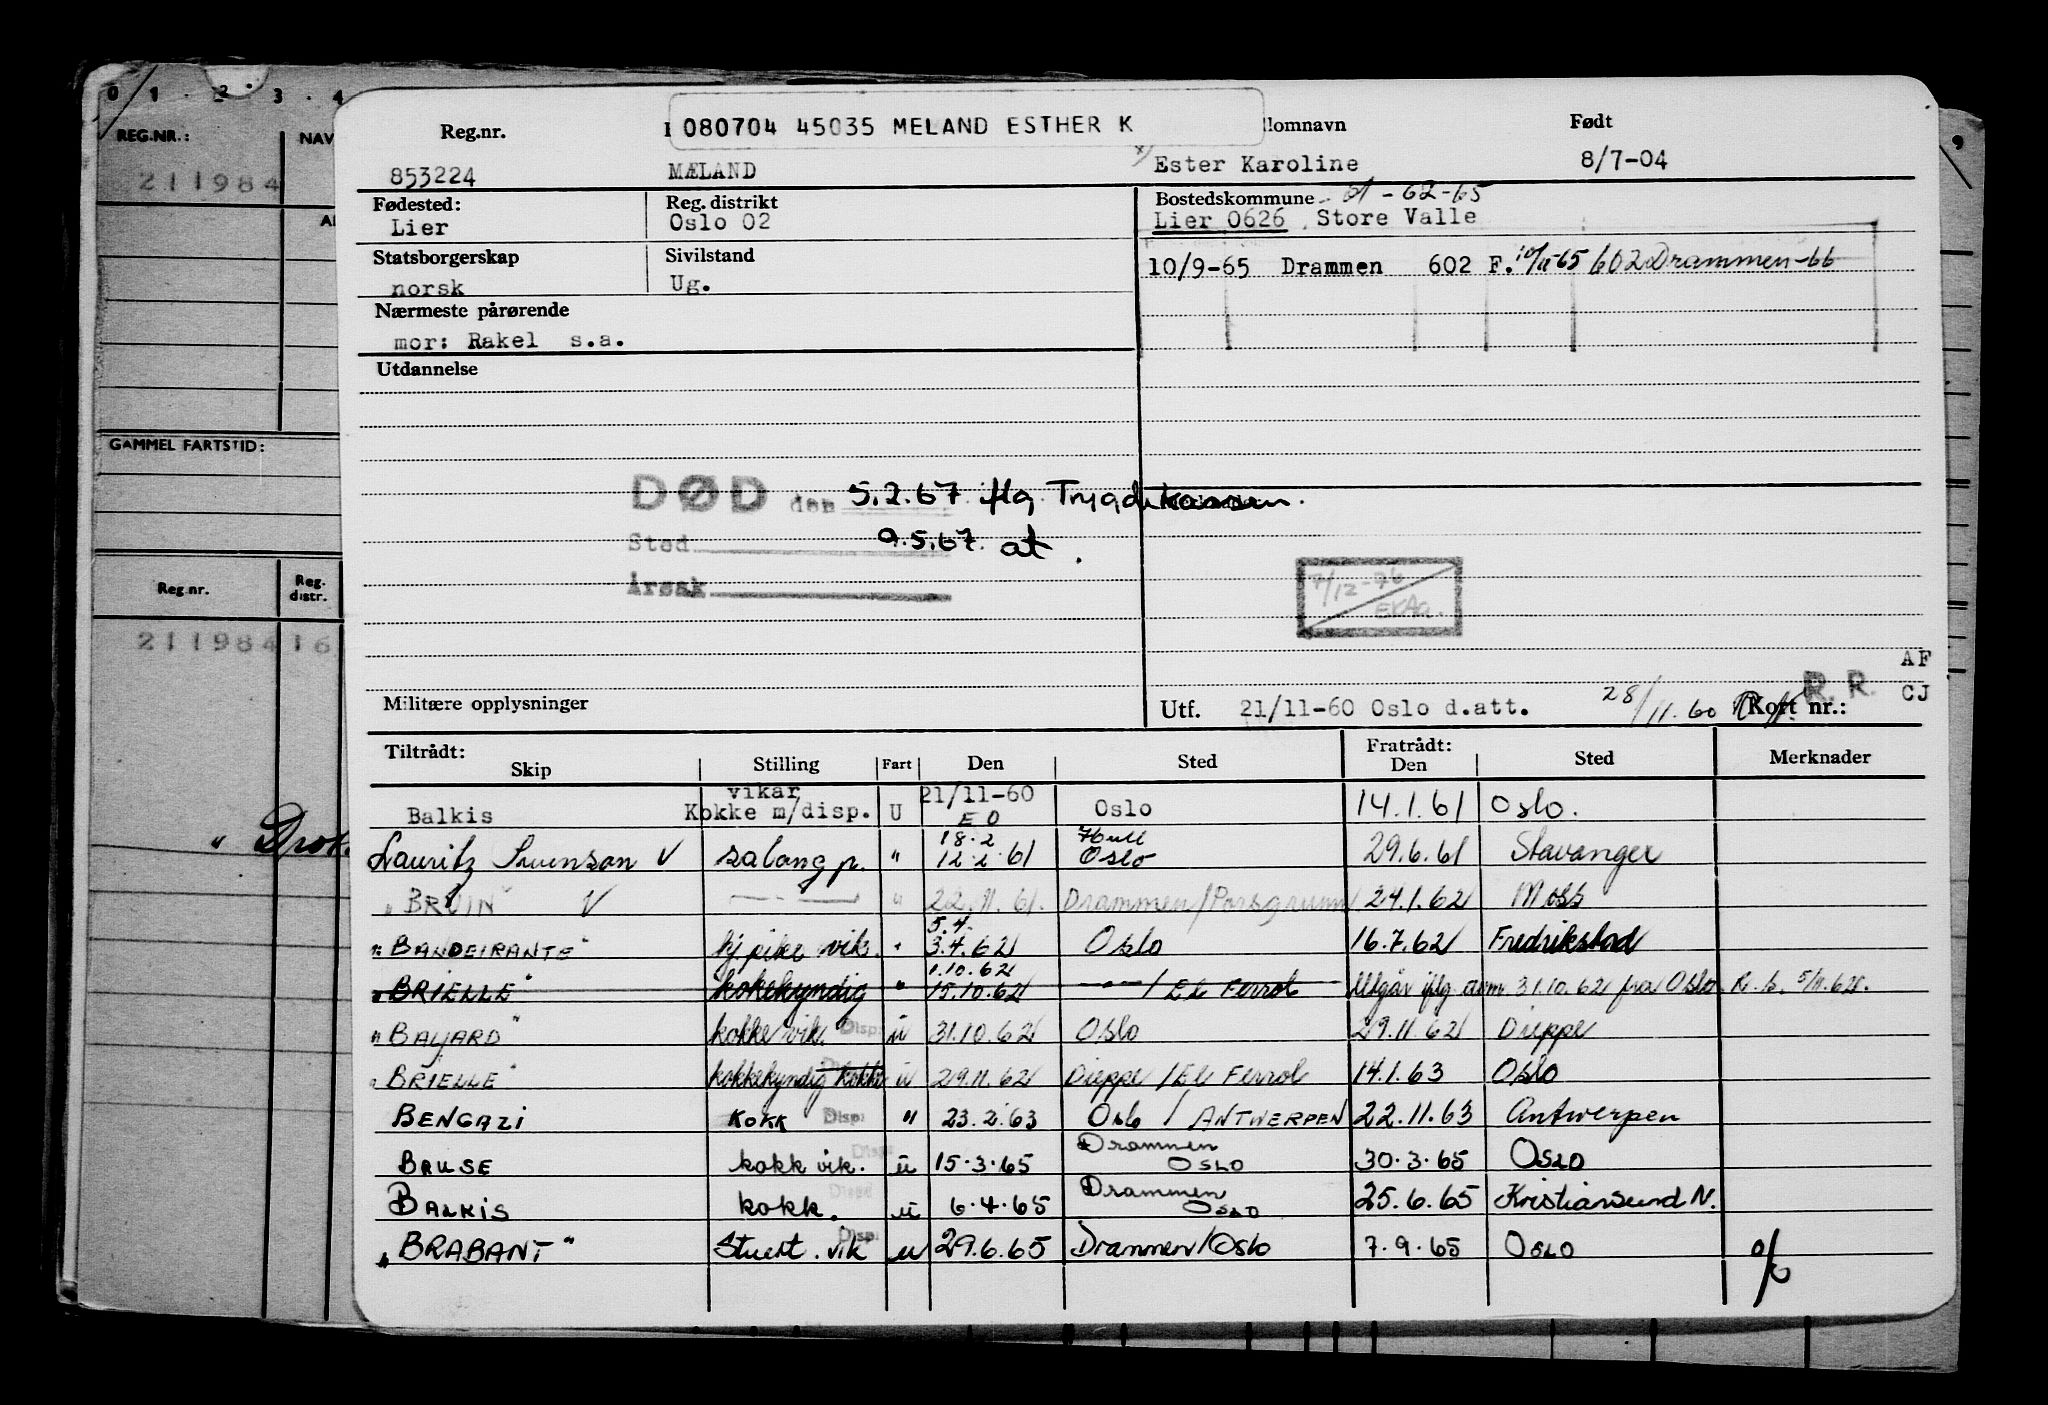 0 1 . 2 . 3 . 4
9
REG.NR.: NAV
211984
GAMMEL FARTSTID:
Reg.nr. Reg. distr.
211984 16
" Drok
Reg.nr. 080704 45035 MELAND ESTHER K llomnavn Født
853224 MÆLAND x) Ester Karoline 8/7-04
Fødested: Reg. distrikt Bostedskommune 61-62-65
Lier Oslo 02 Lier 0626 Store Valle
Statsborgerskap Sivilstand
norsk Ug. 10/9-65 Drammen 602 F. 602 Drammen-66
Nærmeste pårørende
mor: Rakel s.a.
Utdannelse
DØD den 5.2.67 flg Trygdekassen.
Sted 9.5.67. at.
Årsak
7/12-76
EKAa.
AF
R. R. CJ
Militære opplysninger Utf. 21/11-60 Oslo d.att. 28/11.60 Kort nr.:
Tiltrådt: Fratrådt:
Skip Stilling Fart Den Sted Den Sted Merknader
vikar 21/11-60
Balkis Kokke m/disp. U E O Oslo 14.1.61 Oslo.
18.2 Hull
Lauritz Swenson V salong p. " 12.2.61 Oslo 29.6.61 Stavanger
"BRUIN" V —"— " 22.11.61. Drammen/Porsgrunn 24.1.62 Moss
5.4.
"BANDEIRANTE" kj pike vik. " 3.4.62 Oslo 16.7.62 Fredrikstad
1.10.62
"BRIELLE" kokkekyndig " 15.10.62 —"— / El Ferrol Utgår iflg. 31.10.62 fra Oslo R.b. 5/11.62.
"BAJARD" kokke vik. Disp: u 31.10.62 Oslo 29.11.62 Dieppe
"BRIELLE" kokkekyndig kokke u 29.11.62 Dieppe / El Ferrol 14.1.63 Oslo
BENGAZI KOKK Disp: " 23.2.63 Oslo / ANTWERPEN 22.11.63 Antwerpen
Drammen
BRUSE kokk vik. Disp: u 15.3.65 OSLO 30.3.65 OSLO
Drammen
BALKIS kokk. u 6.4.65 OSLO 25.6.65 Kristiansund N.
"BRABANT" Stuert. vik Disp: u 29.6.65 Drammen/Oslo 7.9.65 OSLO